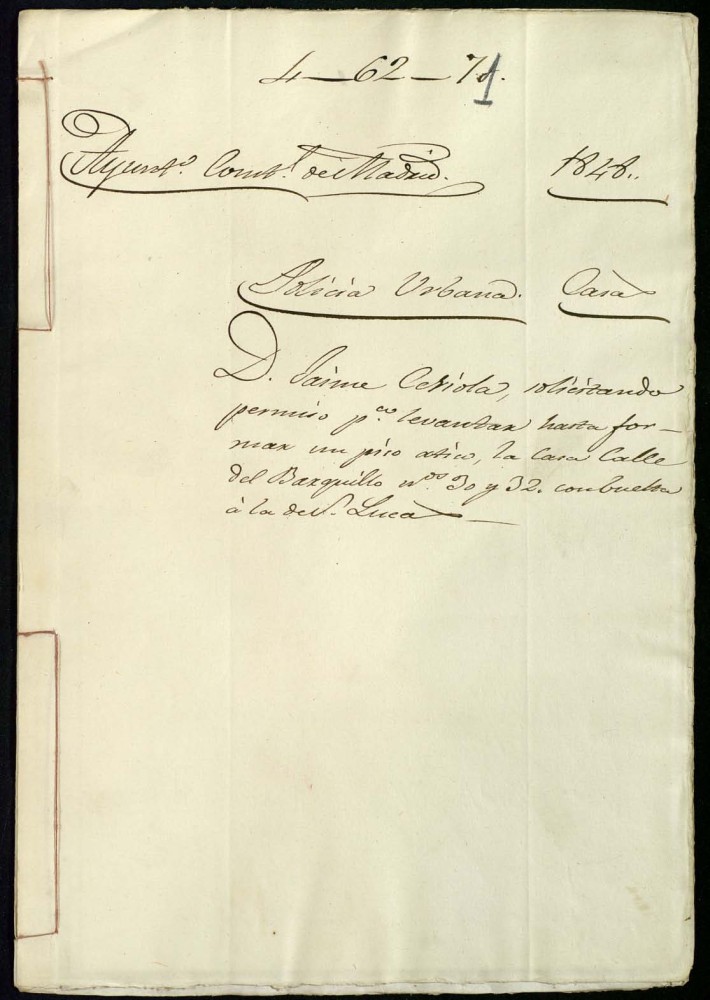 4—62—71.
Ayunt.º Const.l de Madrid. 1848..
Policia Urbana. Casa
D. Jaime Ceriola, solicitando
permiso p.ª levantar hasta for-
mar un piso atico, la Casa Calle
del Barquillo n.os 30 y 32. con buelta
à la de S.n Lucas